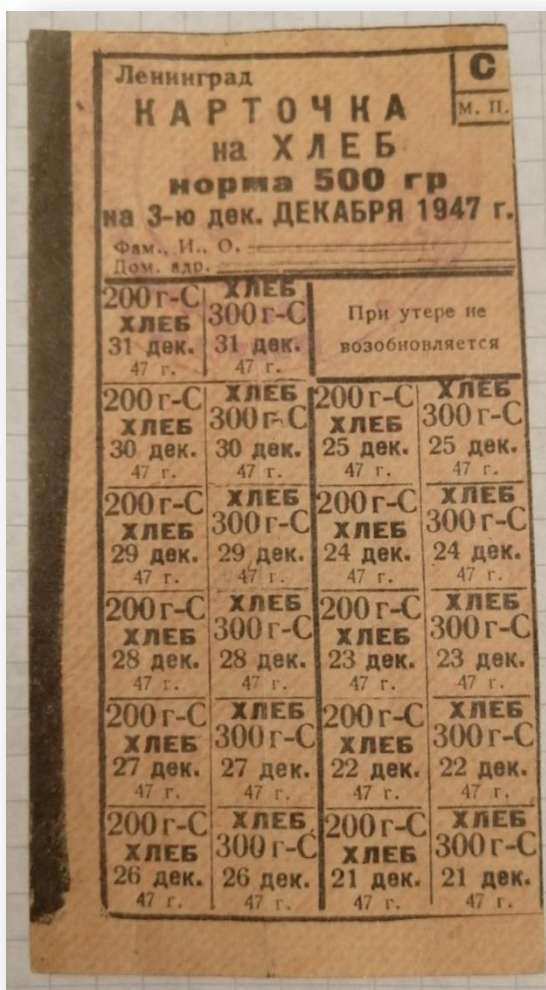 Ленинград
С
М. П.
КАРТОЧКА
на ХЛЕБ
норма 500 гр
на 3-ю дек. ДЕКАБРЯ 1947 г.
Фам., И., О.
Дом. адр.
200 г-С
ХЛЕБ
31 дек.
47 г.
ХЛЕБ
300 г-С
31 дек.
47 г.
При утере не
возобновляется
200 г-С
ХЛЕБ
30 дек.
47 г.
ХЛЕБ
300 г-С
30 дек.
47 г.
200 г-С
ХЛЕБ
25 дек.
47 г.
ХЛЕБ
300 г-С
25 дек.
47 г.
200 г-С
ХЛЕБ
29 дек.
47 г.
ХЛЕБ
300 г-С
29 дек.
47 г.
200 г-С
ХЛЕБ
24 дек.
47 г.
ХЛЕБ
300 г-С
24 дек.
47 г.
200 г-С
ХЛЕБ
28 дек.
47 г.
ХЛЕБ
300 г-С
28 дек.
47 г.
200 г-С
ХЛЕБ
23 дек.
47 г.
ХЛЕБ
300 г-С
23 дек.
47 г.
200 г-С
ХЛЕБ
27 дек.
47 г.
ХЛЕБ
300 г-С
27 дек.
47 г.
200 г-С
ХЛЕБ
22 дек.
47 г.
ХЛЕБ
300 г-С
22 дек.
47 г.
200 г-С
ХЛЕБ
26 дек.
47 г.
ХЛЕБ
300 г-С
26 дек.
47 г.
200 г-С
ХЛЕБ
21 дек.
47 г.
ХЛЕБ
300 г-С
21 дек.
47 г.